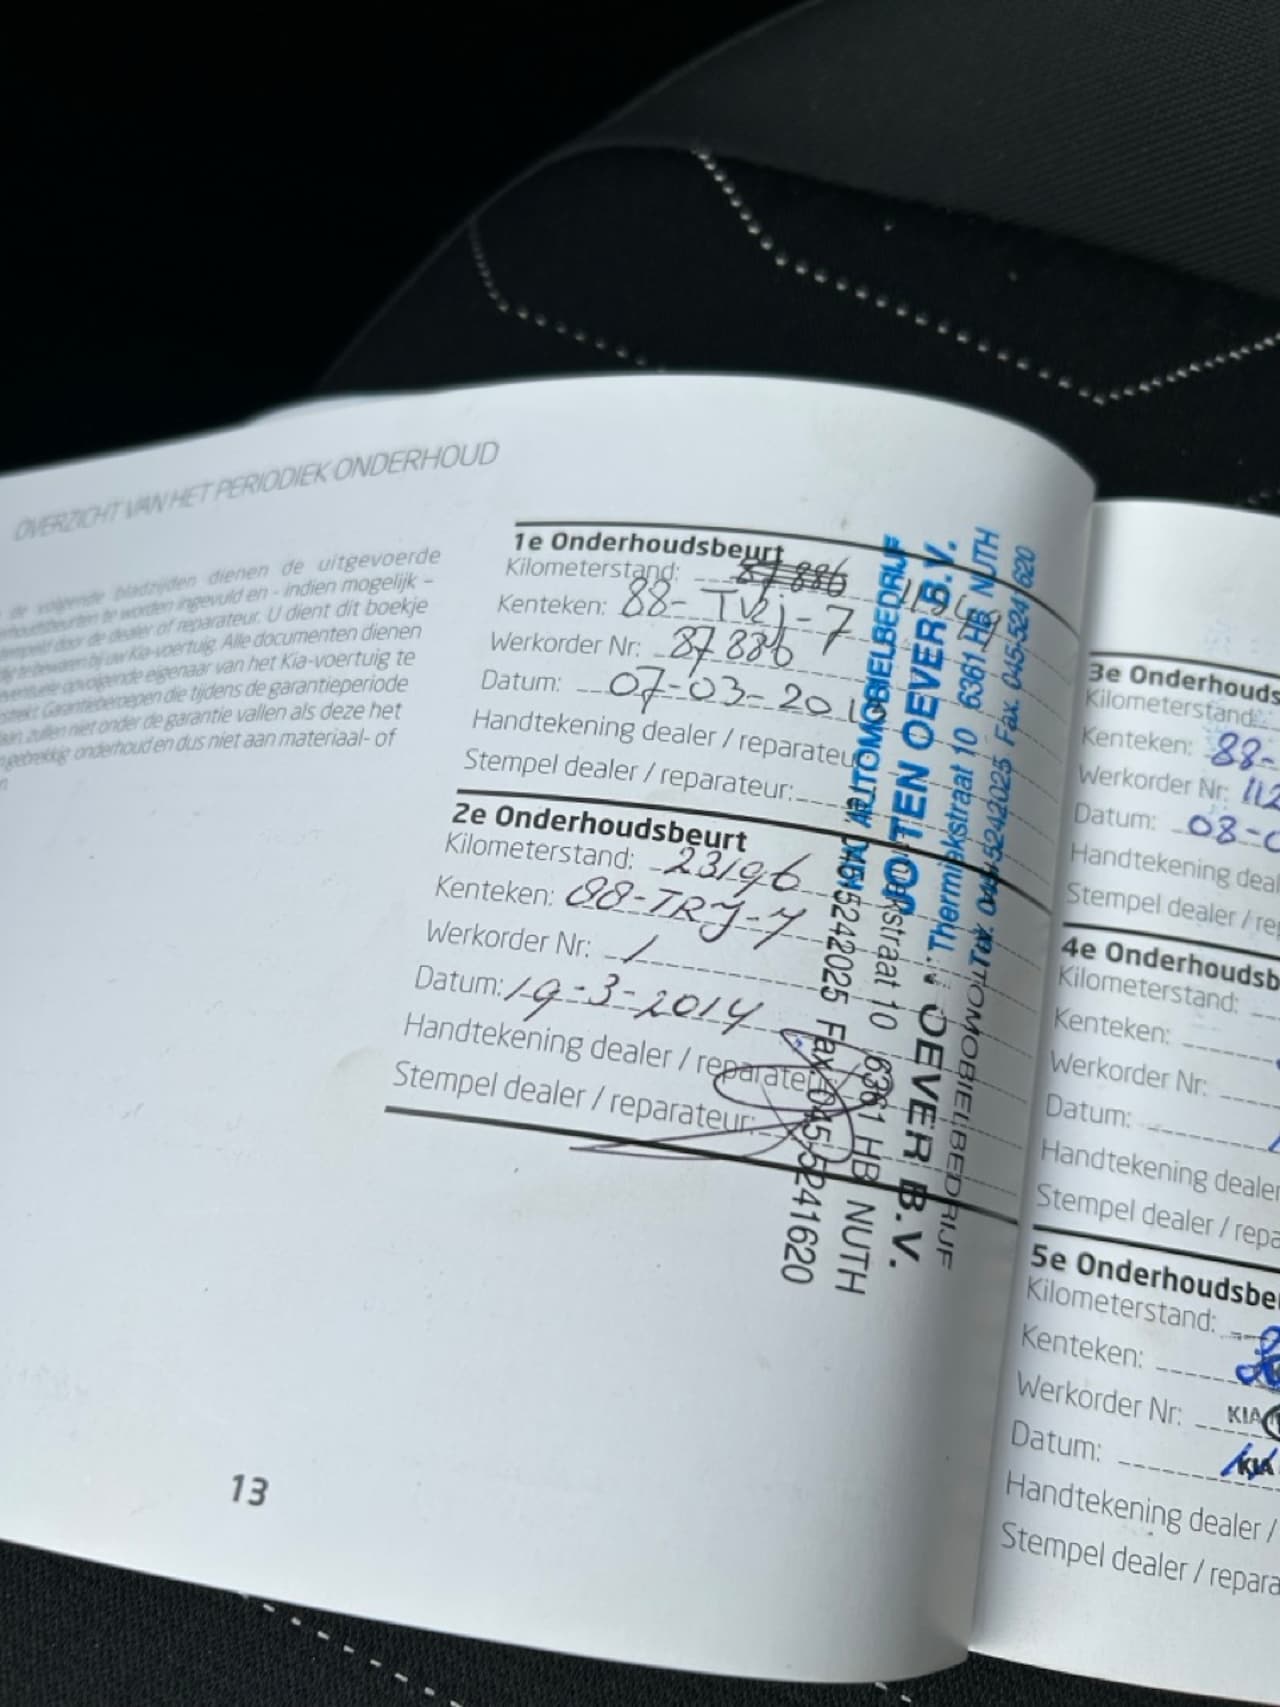 OVERZICHT VAN HET PERIODIEK ONDERHOUD
de volgende bladzijden dienen de uitgevoerde
te worden ingevuld en - indien mogelijk -
door de dealer of reparateur. U dient dit boekje
bij uw Kia-voertuig. Alle documenten dienen
eventuele opvolgende eigenaar van het Kia-voertuig te
Garantieberoepen die tijdens de garantieperiode
zullen niet onder de garantie vallen als deze het
gebrekkig onderhoud en dus niet aan materiaal- of
1e Onderhoudsbeurt
Kilometerstand: 87886
Kenteken: 88-TRJ-7
Werkorder Nr: 87886
Datum: 07-03-201
Handtekening dealer / reparateu
Stempel dealer / reparateur:
AUTOMOBIELBEDRIJF
JO TEN OEVER B.V.
Thermiekstraat 10 6361 HB NUTH
Tel. 045-5242025 Fax. 045-5241620
2e Onderhoudsbeurt
Kilometerstand: 23196
Kenteken: 88-TRJ-7
Werkorder Nr: /
Datum: 19-3-2014
Handtekening dealer / reparateur
Stempel dealer / reparateur:
TOMOBIELBEDRIJF
N OEVER B.V.
kstraat 10 6361 HB NUTH
045-5242025 Fax 045-5241620
13
3e Onderhouds
Kilometerstand:
Kenteken: 88-
Werkorder Nr: 112
Datum: 08-0
Handtekening deal
Stempel dealer / re
4e Onderhoudsb
Kilometerstand:
Kenteken:
Werkorder Nr:
Datum:
Handtekening dealer
Stempel dealer / repa
5e Onderhoudsbeu
Kilometerstand:
Kenteken:
Werkorder Nr: KIA
Datum: KIA
Handtekening dealer /
Stempel dealer / repara